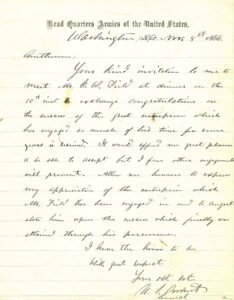 Head Quarters Armies of the United States,
Washington, D.C. Nov. 8th 1866.
Gentlemen:
Your kind invitation to me to
meet Mr. C. W. Field at dinner on the
15th inst. to exchange congratulations on
the success of the great enterprise which
has engaged so much of his time for some
years is received. It would afford me great pleasure
to be able to accept but I fear other engagements
will prevent. Allow me however to express
my appreciation of the enterprise which
Mr. Field has been engaged in and to congrat-
ulate him upon the success which finally was
attained through his perseverance.
I have the honor to be
With great respect
Your obt. svt.
U. S. Grant
General